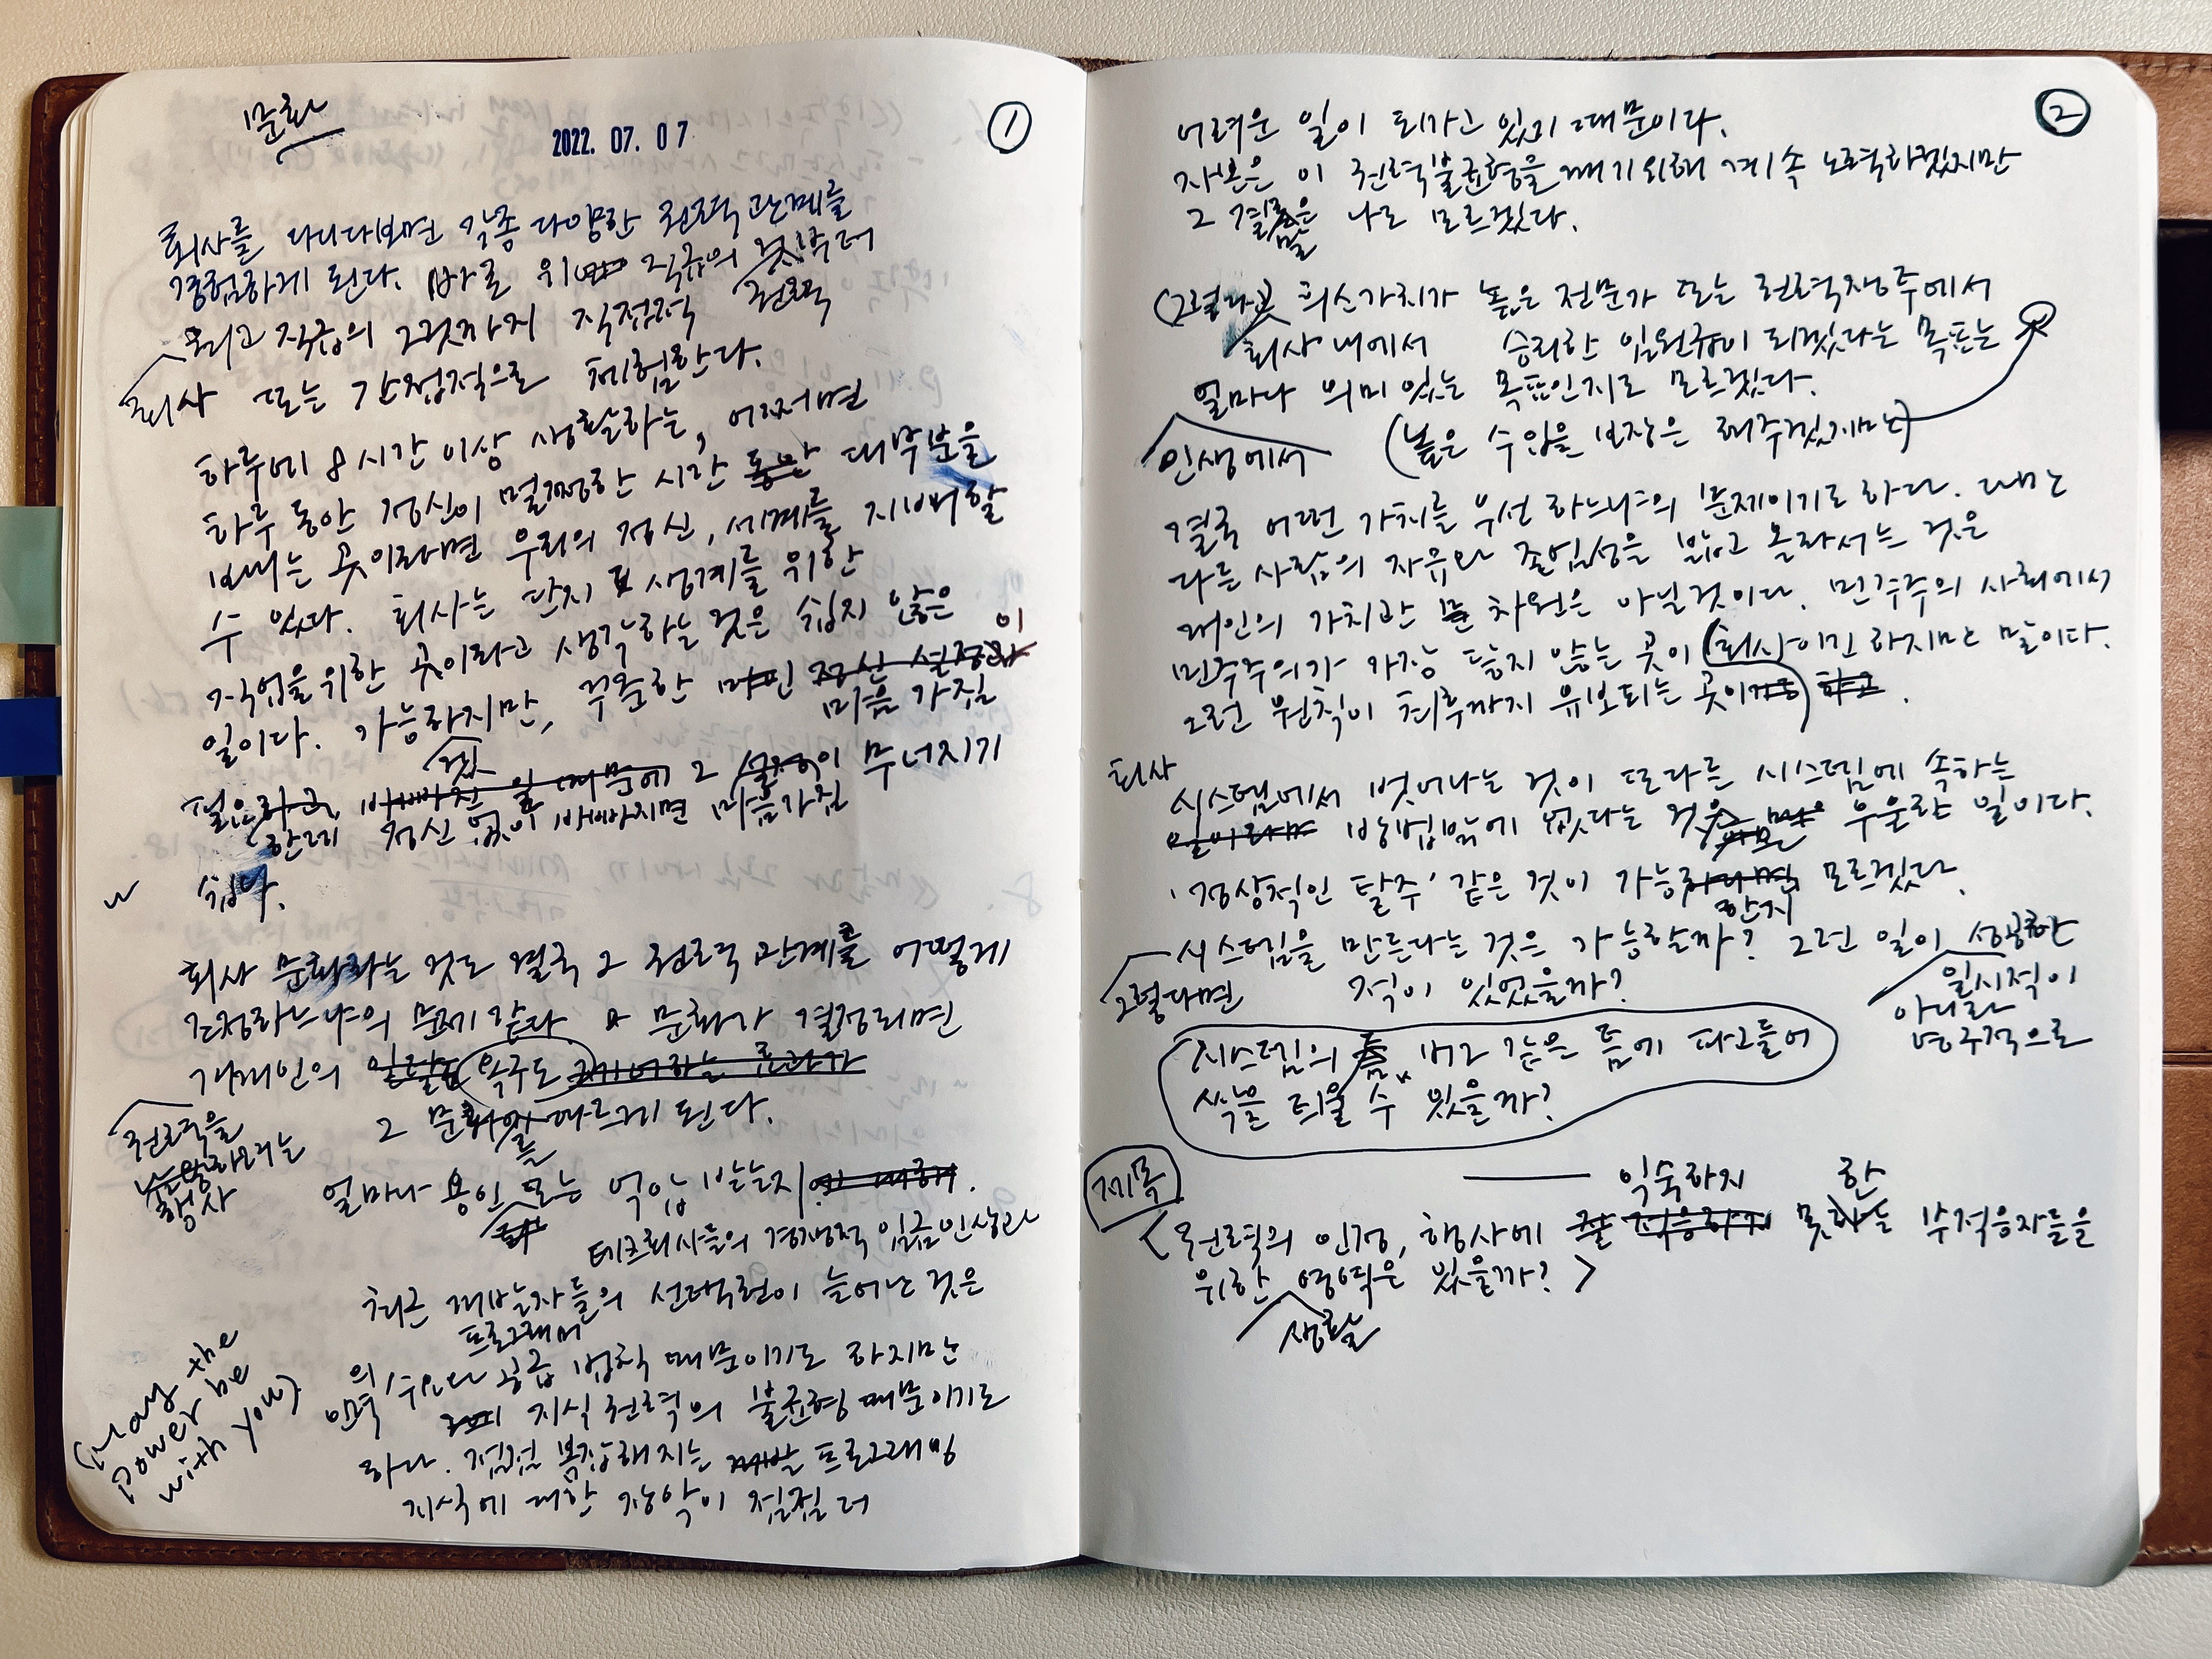 문화
2022. 07. 07
①
회사를 다니다보면 각종 다양한 권력 관계를
경험하게 된다. 바로 위 직급의 것부터
권력
최고 직급의 그것까지 직접적
회사
또는 간접적으로 체험한다.
하루에 8시간 이상 생활하는, 어쩌면
하루 동안 정신이 멀쩡한 시간 동안 대부분을
보내는 곳이라면 우리의 정신, 세계를 지배할
수 있다. 회사는 단지 생계를 위한
직업을 위한 곳이라고 생각하는 것은 쉽지 않은
일이다. 가능하지만, 꾸준한 정신 설정이
마음가짐
것
필요하고, 바빠진 일 때문에 그 설정이 무너지기
한데 정신없이 바빠지면 마음가짐
쉽다.
회사 문화라는 것도 결국 그 권력 관계를 어떻게
조정하느냐의 문제 같다. 문화가 결정되면
개개인의 일탈 욕구도 제어하는 효과가
권력을
남용하려는
행사
그 문화에 따르게 된다.
를
얼마나 용인 또는 억압 받는지에 대해.
테크회사들의 경쟁적 임금인상과
최근 개발자들의 선택권이 늘어난 것은
프로그래머
의
인력 수요와 공급 법칙 때문이기도 하지만
지식 권력의 불균형 때문이기도
하다. 점점 복잡해지는 개발 프로그래밍
지식에 대한 장악이 점점 더
(May the
power be
with you)
②
어려운 일이 되가고 있기 때문이다.
자본은 이 권력불균형을 깨기위해 계속 노력하겠지만
그 결론은 나도 모르겠다.
말
(그렇다고 희소가치가 높은 전문가 또는 권력쟁투에서
회사 내에서 승리한 임원급이 되겠다는 목표는
얼마나 의미 있는 목표인지도 모르겠다.
인생에서
(높은 수입을 보장은 해주겠지만)
결국 어떤 가치를 우선 하느냐의 문제이기도 하다. 때론
다른 사람의 자유와 존엄성을 밟고 올라서는 것은
개인의 가치관 차원은 아닐것이다. 민주주의 사회에서
민주주의가 가장 닿지 않는 곳이 회사이긴 하지만 말이다.
그런 원칙이 최후까지 유보되는 곳이기도 하고.
회사
시스템에서 벗어나는 것이 또다른 시스템에 속하는
일이라면 방법밖에 없다는 것은 우울한 일이다.
'정상적인 탈주' 같은 것이 가능하다면 모르겠다.
한지
시스템을 만든다는 것은 가능할까? 그런 일이 성공한
그렇다면
적이 있었을까?
일시적이
아니라
영구적으로
시스템의 틈, 벽과 같은 틈에 파고들어
싹을 틔울 수 있을까?
제목
익숙하지 한
<권력의 인정, 행사에 잘 적응하지 못하는 부적응자들을
위한 영역은 있을까?>
생활